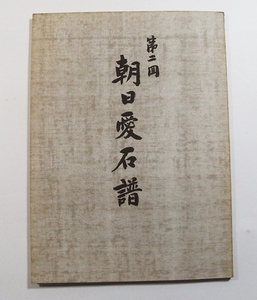 第二回
朝日愛石譜